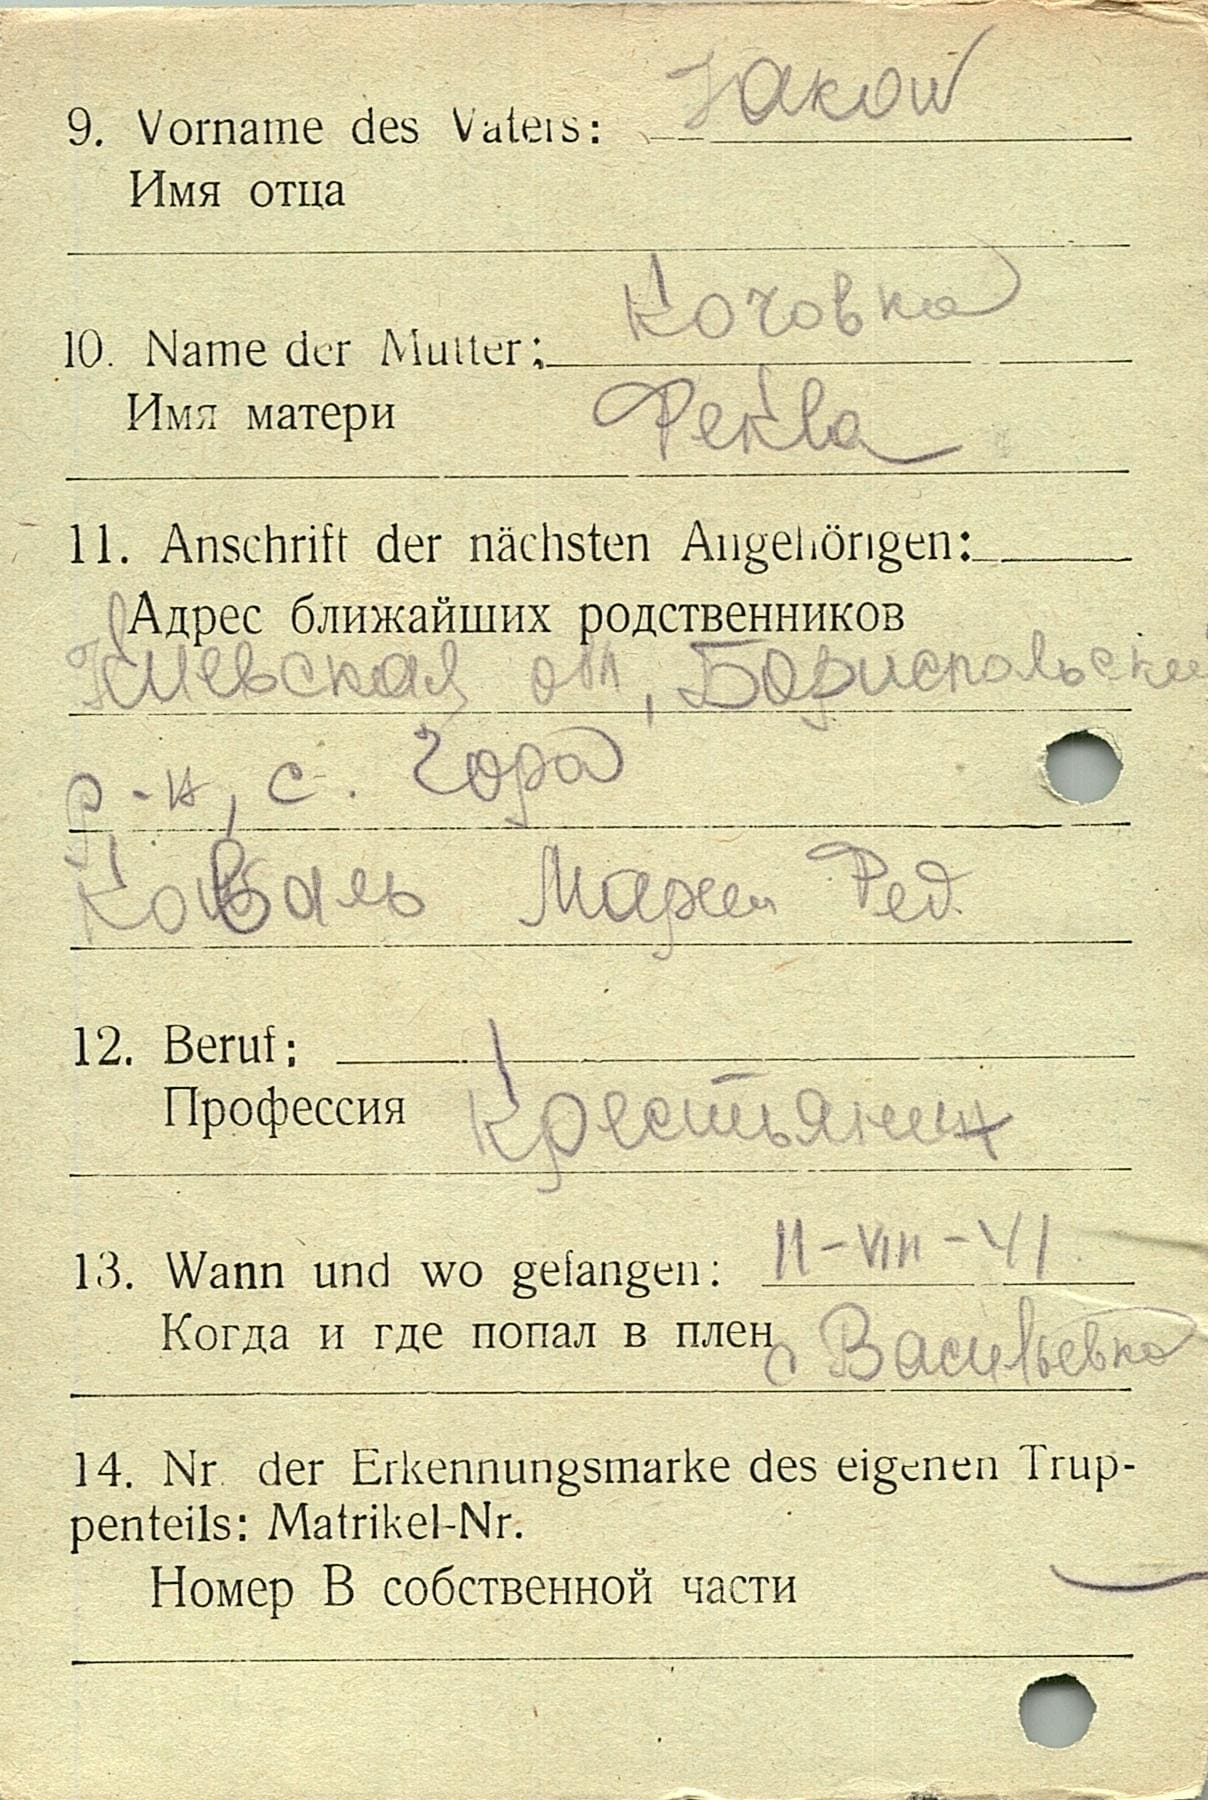 9. Vorname des Vaters: Jakow
Имя отца
Кочовка
10. Name der Mutter:
Имя матери
11. Anschrift der nächsten Angehörigen:
Адрес ближайших родственников
Киевская обл, Бориспольский
р-н, с. Гора
Коваль Мария Фед.
12. Beruf:
Профессия Крестьянин
13. Wann und wo gefangen: 11-VIII-41
Когда и где попал в плен с Васильевка
14. Nr. der Erkennungsmarke des eigenen Trup-
penteils: Matrikel-Nr.
Номер В собственной части —